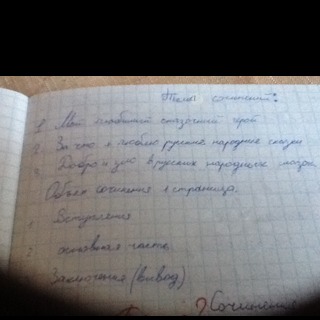 Темы сочинений:
1 Мой любимый сказочный герой
2. За что я люблю русские народные сказки
3. Добро и зло в русских народных сказках
Объём сочинения 1 страница.
Вступление
основная часть
Заключение (вывод)
Сочинение